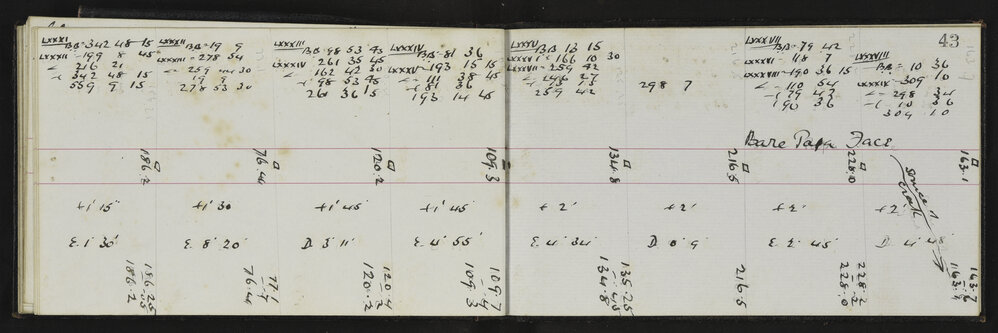 43
LXXXI
BB = 342 48 15
LXXXII - 199 8 45
< 216 21
-( 342 48 15
559 9 15
LXXXII
BB = 19 9
LXXXIII = 278 54
< = 259 44 30
19 9
278 53 30
LXXXIII
BB = 98 53 45
261 35 45
< 162 42 30
-( 98 53 45
261 36 15
LXXXIV
BB = 81 36
LXXXV - 193 15 15
< 111 38 45
-( 81 36
193 14 45
LXXXV
BB 13 15
LXXXVI = 166 10 30
LXXXVII = 259 42
< 246 27
13 15
259 42
298 7
LXXXVII
BB = 79 42
LXXXVI - 118 7
LXXXVIII - 190 36 15
< - 110 54
-( 79 42
190 36
LXXXVIII
BB = 10 36
LXXXIX - 309 10
< - 298 34
-( 10 36
309 10
Bare Papa Face
186.2
76.44
120.2
109.3
134.8
216.5
228.0
163.1
+1' 15"
+1' 30
+1' 45"
+1' 45"
+ 2'
+ 2'
+ 2'
+ 2'
E. 1° 30'
E. 8° 20'
D. 3° 11'
E. 4° 55'
E. 4° 34'
D. 0° 9'
E. 2° 45'
D. 4° 48'
186.25
.05
186.2
77.1
76.44
120.4
.2
120.2
109.7
.4
109.3
135.25
.45
134.8
216.5
228.2
.2
228.0
163.7
.6